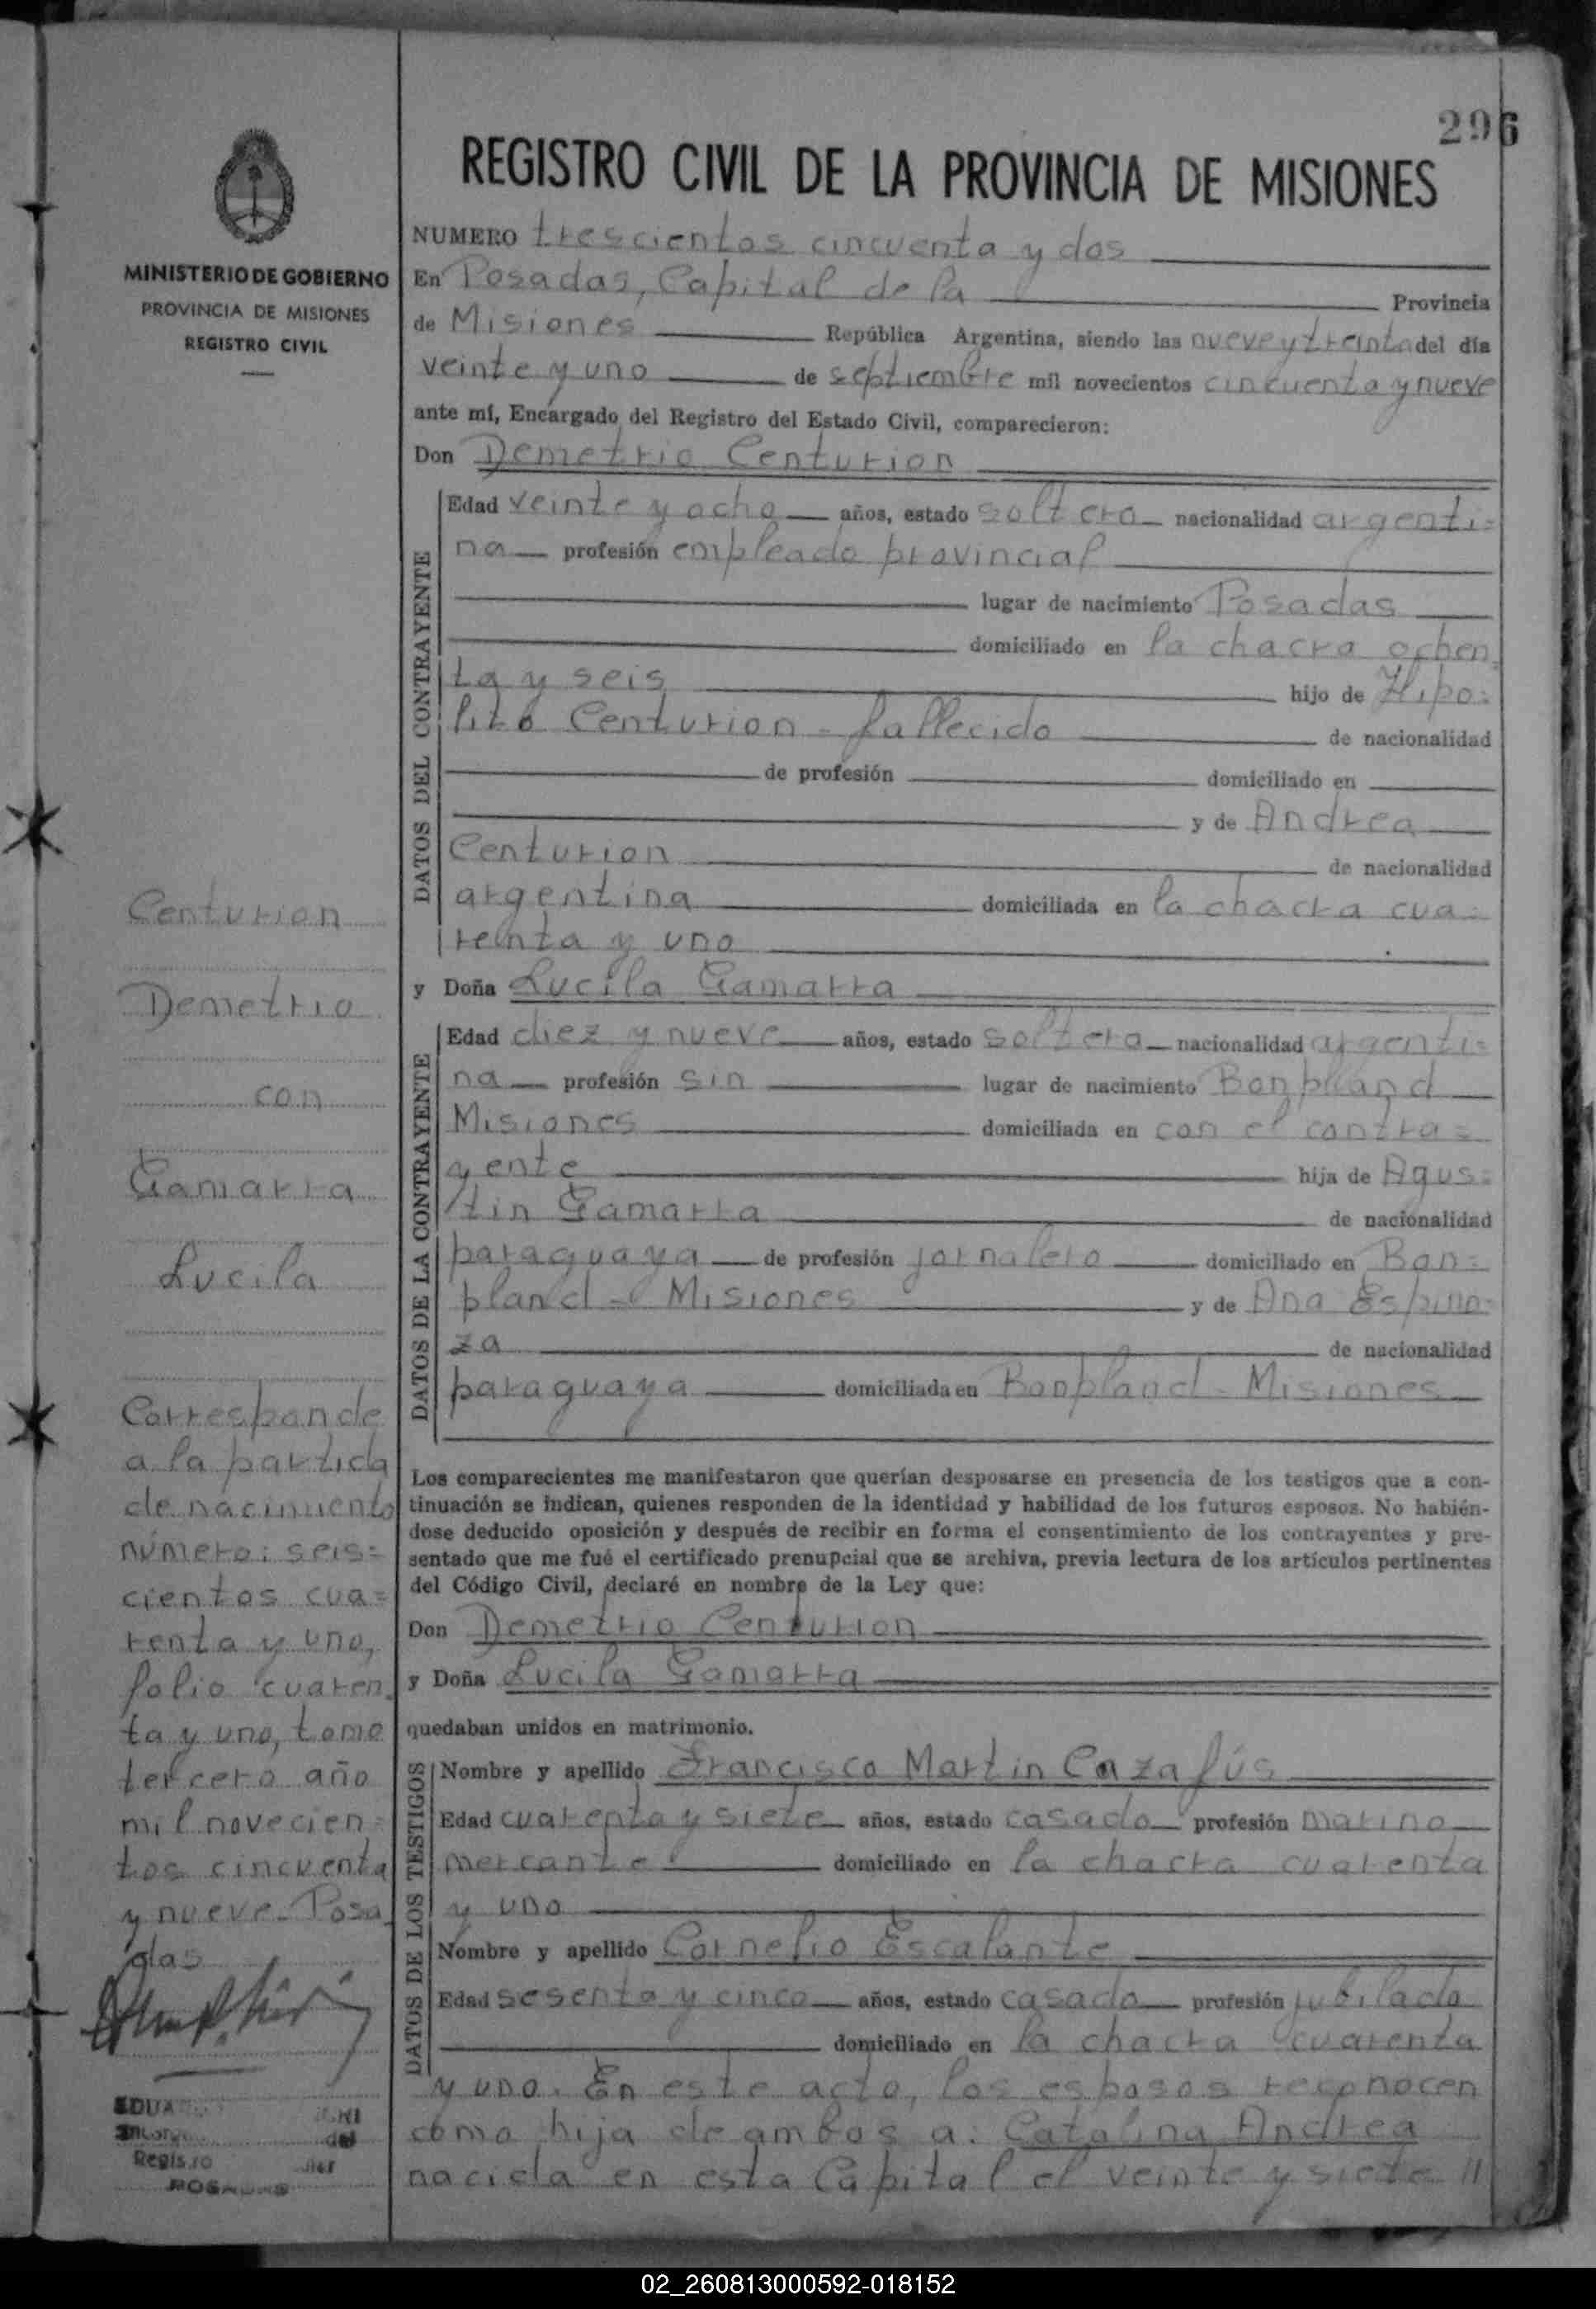 296
REGISTRO CIVIL DE LA PROVINCIA DE MISIONES
MINISTERIO DE GOBIERNO
PROVINCIA DE MISIONES
REGISTRO CIVIL
NUMERO trescientos cincuenta y dos
En Posadas, Capital de la Provincia
de Misiones República Argentina, siendo las nueve y treinta del día
veinte y uno de septiembre mil novecientos cincuenta y nueve
ante mí, Encargado del Registro del Estado Civil, comparecieron:
Don Demetrio Centurion
DATOS DEL CONTRAYENTE
Edad veinte y ocho años, estado soltero nacionalidad argenti=
na profesión empleado provincial
lugar de nacimiento Posadas
domiciliado en la chacra ochen=
ta y seis hijo de Hipo=
lito Centurion - fallecido de nacionalidad
de profesión domiciliado en
y de Andrea
Centurion de nacionalidad
argentina domiciliada en la chacra cua=
renta y uno
y Doña Lucila Gamarra
DATOS DE LA CONTRAYENTE
Edad diez y nueve años, estado soltera nacionalidad argenti=
na profesión sin lugar de nacimiento Bonpland
Misiones domiciliada en con el contra=
yente hija de Agus=
tin Gamarra de nacionalidad
paraguaya de profesión jornalero domiciliado en Bon=
pland - Misiones y de Ana Espino=
za de nacionalidad
paraguaya domiciliada en Bonpland - Misiones
Los comparecientes me manifestaron que querían desposarse en presencia de los testigos que a con-
tinuación se indican, quienes responden de la identidad y habilidad de los futuros esposos. No habién-
dose deducido oposición y después de recibir en forma el consentimiento de los contrayentes y pre-
sentado que me fué el certificado prenupcial que se archiva, previa lectura de los artículos pertinentes
del Código Civil, declaré en nombre de la Ley que:
Don Demetrio Centurion
y Doña Lucila Gamarra
quedaban unidos en matrimonio.
DATOS DE LOS TESTIGOS
Nombre y apellido Francisco Martin Cazalús
Edad cuarenta y siete años, estado casado profesión marino
mercante domiciliado en la chacra cuarenta
y uno
Nombre y apellido Cornelio Escalante
Edad sesenta y cinco años, estado casado profesión jubilado
domiciliado en la chacra cuarenta
y uno. En este acto, los esposos reconocen
como hija de ambos a: Catalina Andrea
nacida en esta Capital el veinte y siete //
Centurion
Demetrio
con
Gamarra
Lucila
Corresponde
a la partida
de nacimiento
número: seis=
cientos cua=
renta y uno,
folio cuaren=
ta y uno, tomo
tercero año
mil novecien=
tos cincuenta
y nueve - Posa
das
02_260813000592-018152